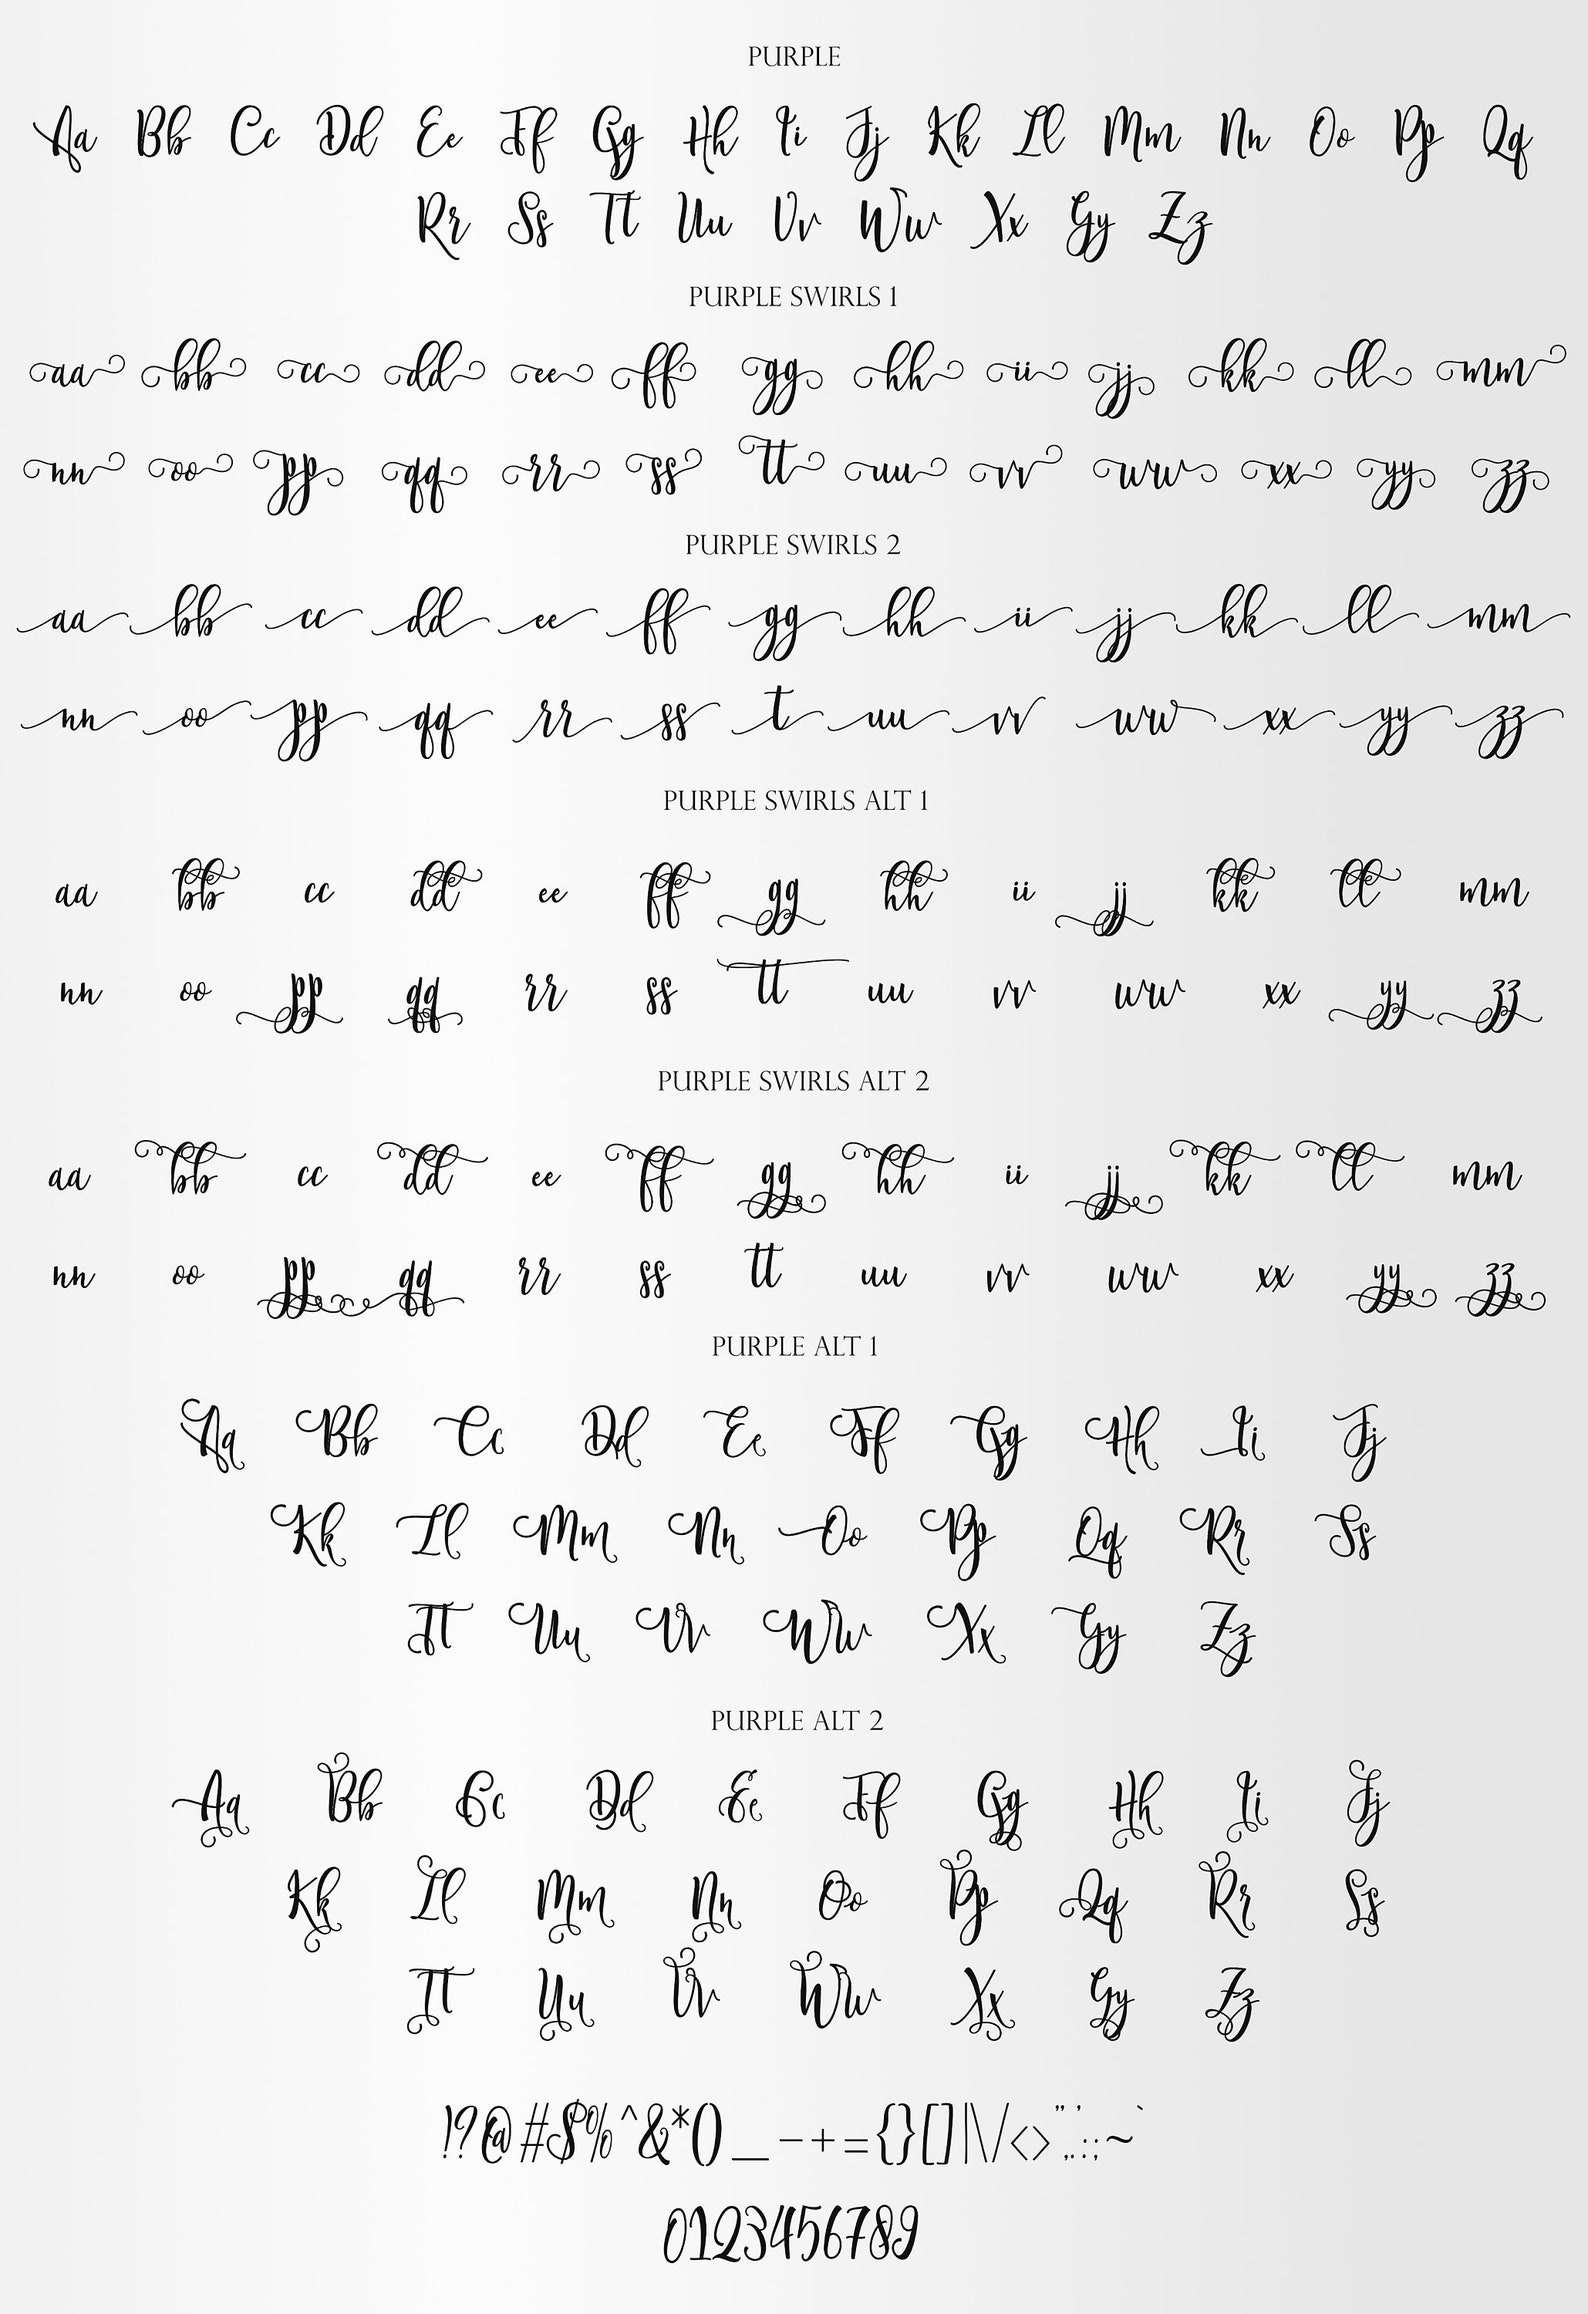 PURPLE
Aa Bb Cc Dd Ee Ff Gg Hh Ii Jj Kk Ll Mm Nn Oo Pp Qq
Rr Ss Tt Uu Vv Ww Xx Yy Zz
PURPLE SWIRLS 1
aa bb cc dd ee ff gg hh ii jj kk ll mm
nn oo pp qq rr ss tt uu vv ww xx yy zz
PURPLE SWIRLS 2
aa bb cc dd ee ff gg hh ii jj kk ll mm
nn oo pp qq rr ss t uu vv ww xx yy zz
PURPLE SWIRLS ALT 1
aa bb cc dd ee ff gg hh ii jj kk ll mm
nn oo pp qq rr ss tt uu vv ww xx yy zz
PURPLE SWIRLS ALT 2
aa bb cc dd ee ff gg hh ii jj kk ll mm
nn oo pp qq rr ss tt uu vv ww xx yy zz
PURPLE ALT 1
Aa Bb Cc Dd Ee Ff Gg Hh Ii Jj
Kk Ll Mm Nn Oo Pp Qq Rr Ss
Tt Uu Vv Ww Xx Yy Zz
PURPLE ALT 2
Aa Bb Cc Dd Ee Ff Gg Hh Ii Jj
Kk Ll Mm Nn Oo Pp Qq Rr Ss
Tt Uu Vv Ww Xx Yy Zz
!?@#$%^&*()_-+={}[]|\/<>"',.:;~`
0123456789